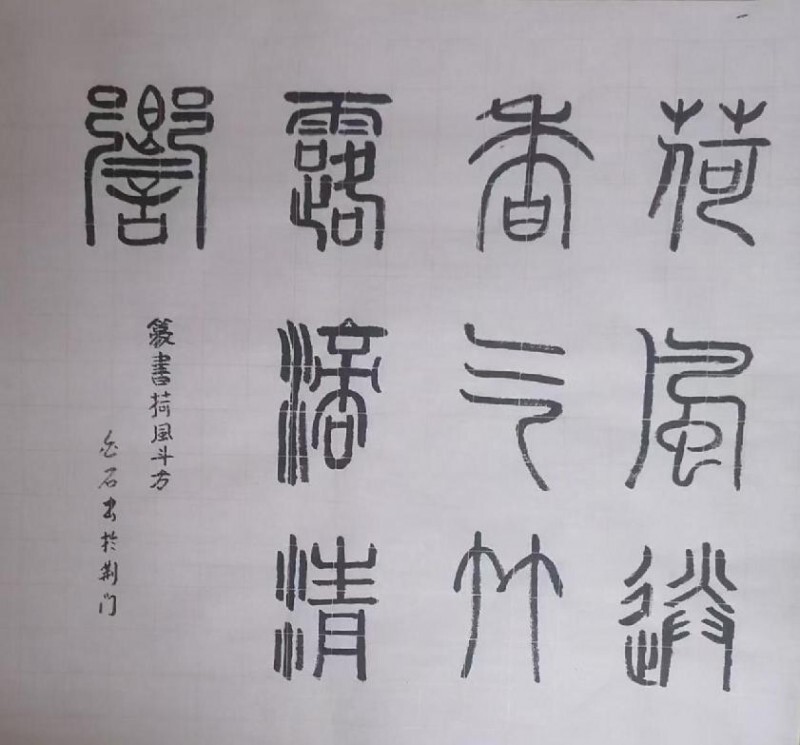 荷風送
香气竹
露滴清
響
篆書荷風斗方
石书於荆门